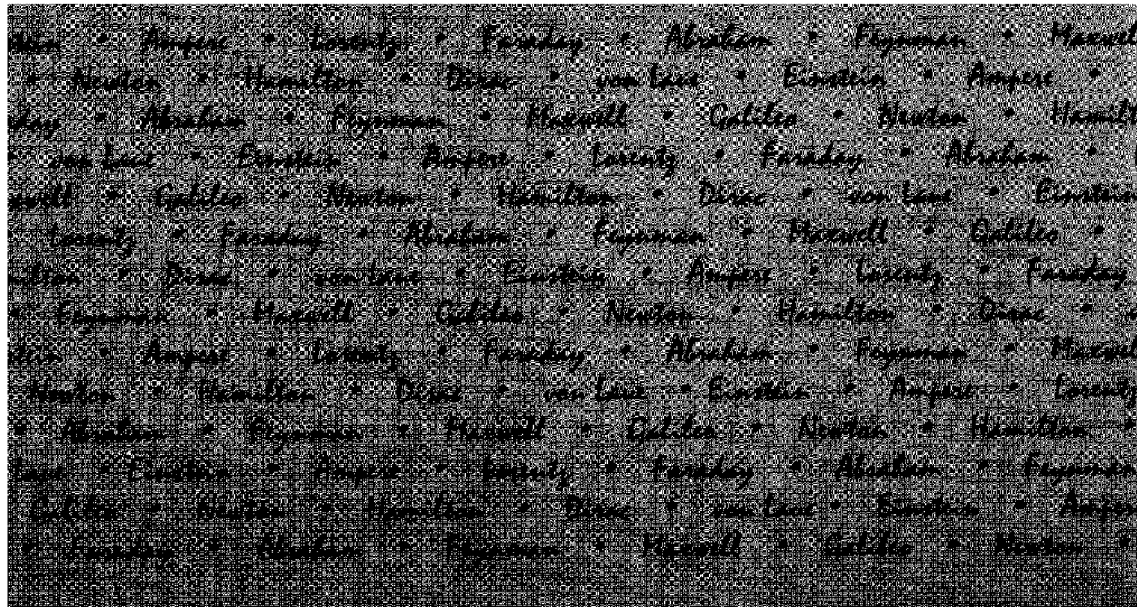 stein • Ampere • Lorentz • Faraday • Abraham • Feynman • Maxwell
• Newton • Hamilton • Dirac • von Laue • Einstein • Ampere •
day • Abraham • Feynman • Maxwell • Galileo • Newton • Hamilt
• von Laue • Einstein • Ampere • Lorentz • Faraday • Abraham •
xwell • Galileo • Newton • Hamilton • Dirac • von Laue • Einstein
Lorentz • Faraday • Abraham • Feynman • Maxwell • Galileo •
milton • Dirac • von Laue • Einstein • Ampere • Lorentz • Faraday
• Feynman • Maxwell • Galileo • Newton • Hamilton • Dirac •
stein • Ampere • Lorentz • Faraday • Abraham • Feynman • Maxwell
Newton • Hamilton • Dirac • von Laue • Einstein • Ampere • Lorentz
• Abraham • Feynman • Maxwell • Galileo • Newton • Hamilton •
Laue • Einstein • Ampere • Lorentz • Faraday • Abraham • Feynman
Galileo • Newton • Hamilton • Dirac • von Laue • Einstein • Ampere
• Faraday • Abraham • Feynman • Maxwell • Galileo • Newton •